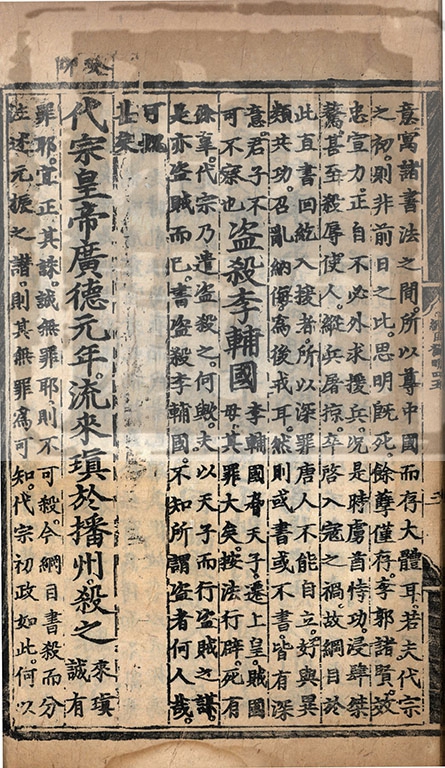 意寓諸書法之間所以尊中國而存大體耳若夫代宗
之初則非前日之此思明既死餘孽僅存李郭諸賢效
忠宣力正自不必外求援兵况是時虜酋恃功浸肆桀
驁甚至殺辱使人縱兵屠掠卒啓入寇之禍故綱目於
此直書回紇入援者所以深罪唐人不能自立好與異
類共功召亂納侮爲後戒耳然則或書或不書皆有深
意君子不
可不察也
盗殺李輔國
李輔國脅天子遷上皇賊國
母其罪大矣按法行辟死有
餘辜代宗乃遣盗殺之何歟夫以天子而行盗賊之謀
是亦盗賊而已書盗殺李輔國不知所謂盗者何人哉
可慨
甚矣
代宗皇帝廣德元年流來瑱於播州殺之
來瑱
誠有
罪耶宜正其誅誠無罪耶則不可殺今綱目書殺而分
注述元振之譖則其無罪爲可知代宗初政如此何以